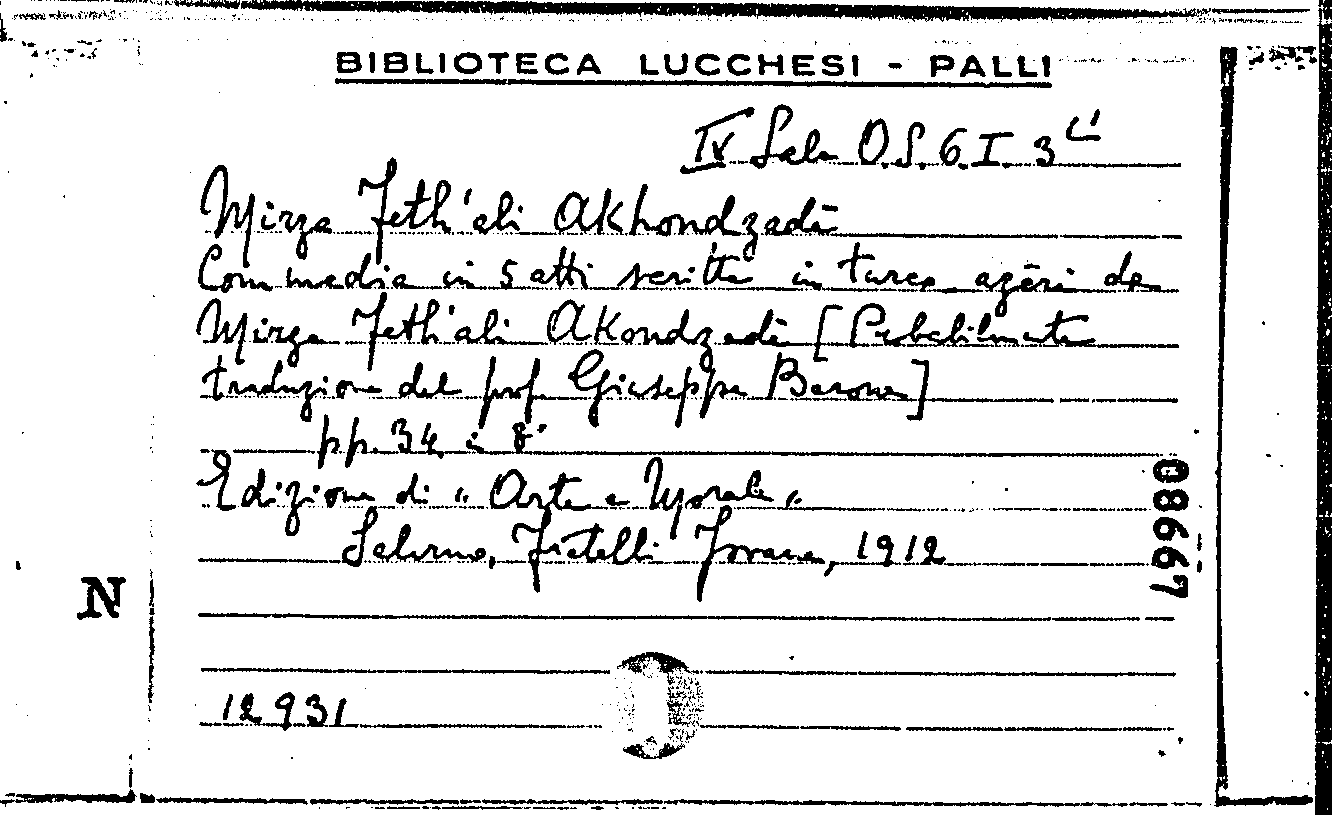 BIBLIOTECA LUCCHESI - PALLI
IV Sala O.S. 6. I. 3
Mirza Feth'ali Akhondzadè
Commedia in 5 atti scritta in turco azèri da
Mirza Feth'ali Akondzadè [Probabilmente
traduzione del prof. Giuseppe Barone]
pp. 34 in 8°
Edizione di "Arte e Morale"
Salerno, Fratelli Jovane, 1912
N
08667
12931